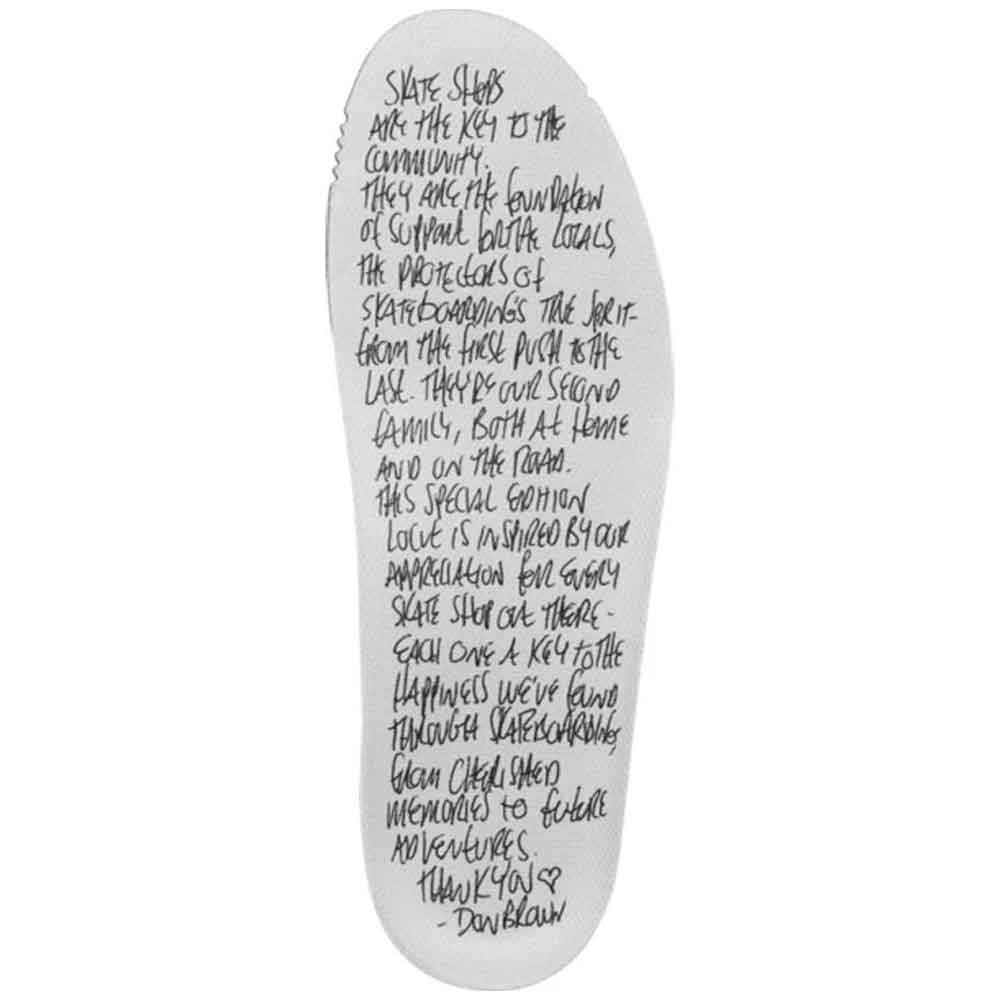 SKATE SHOPS
ARE THE KEY TO THE
COMMUNITY.
THEY ARE THE FOUNDATION
OF SUPPORT FOR THE LOCALS,
THE PROTECTORS OF
SKATEBOARDING'S TRUE SPIRIT-
FROM THE FIRST PUSH TO THE
LAST. THEY'RE OUR SECOND
FAMILY, BOTH AT HOME
AND ON THE ROAD.
THIS SPECIAL EDITION
LOCUT IS INSPIRED BY OUR
APPRECIATION FOR EVERY
SKATE SHOP OUT THERE-
EACH ONE A KEY TO THE
HAPPINESS WE'VE FOUND
THROUGH SKATEBOARDING,
FROM CHERISHED
MEMORIES TO FUTURE
ADVENTURES.
THANK YOU ♡
- DON BROWN